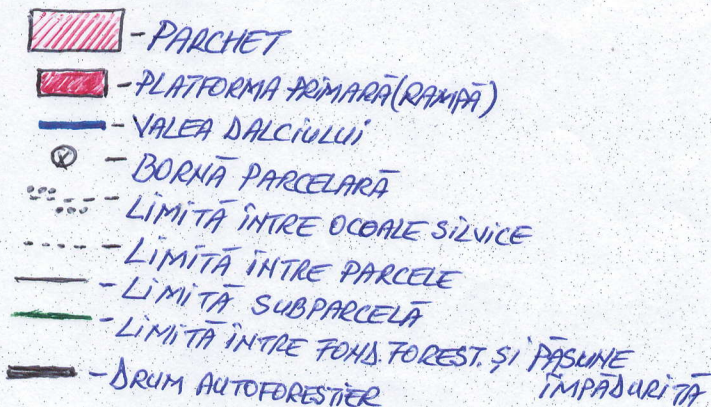 - PARCHET
- PLATFORMA PRIMARĂ (RAMPĂ)
- VALEA DALCIULUI
- BORNĂ PARCELARĂ
- LIMITĂ ÎNTRE OCOALE SILVICE
- LIMITĂ ÎNTRE PARCELE
- LIMITĂ SUBPARCELĂ
- LIMITĂ ÎNTRE FOND. FOREST. ȘI PĂȘUNE
ÎMPĂDURITĂ
- DRUM AUTOFORESTIER